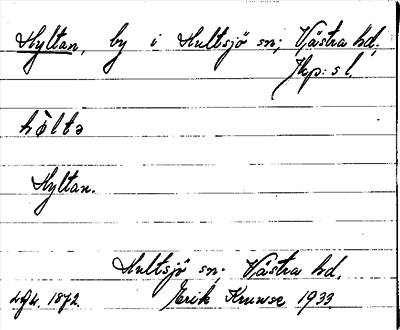 Hyltan, by i Hultsjö sn; Västra hd,
Jkp: s l.
hòltə
Hyltan.
Hultsjö sn; Västra hd.
1872. Erik Kruuse 1933.